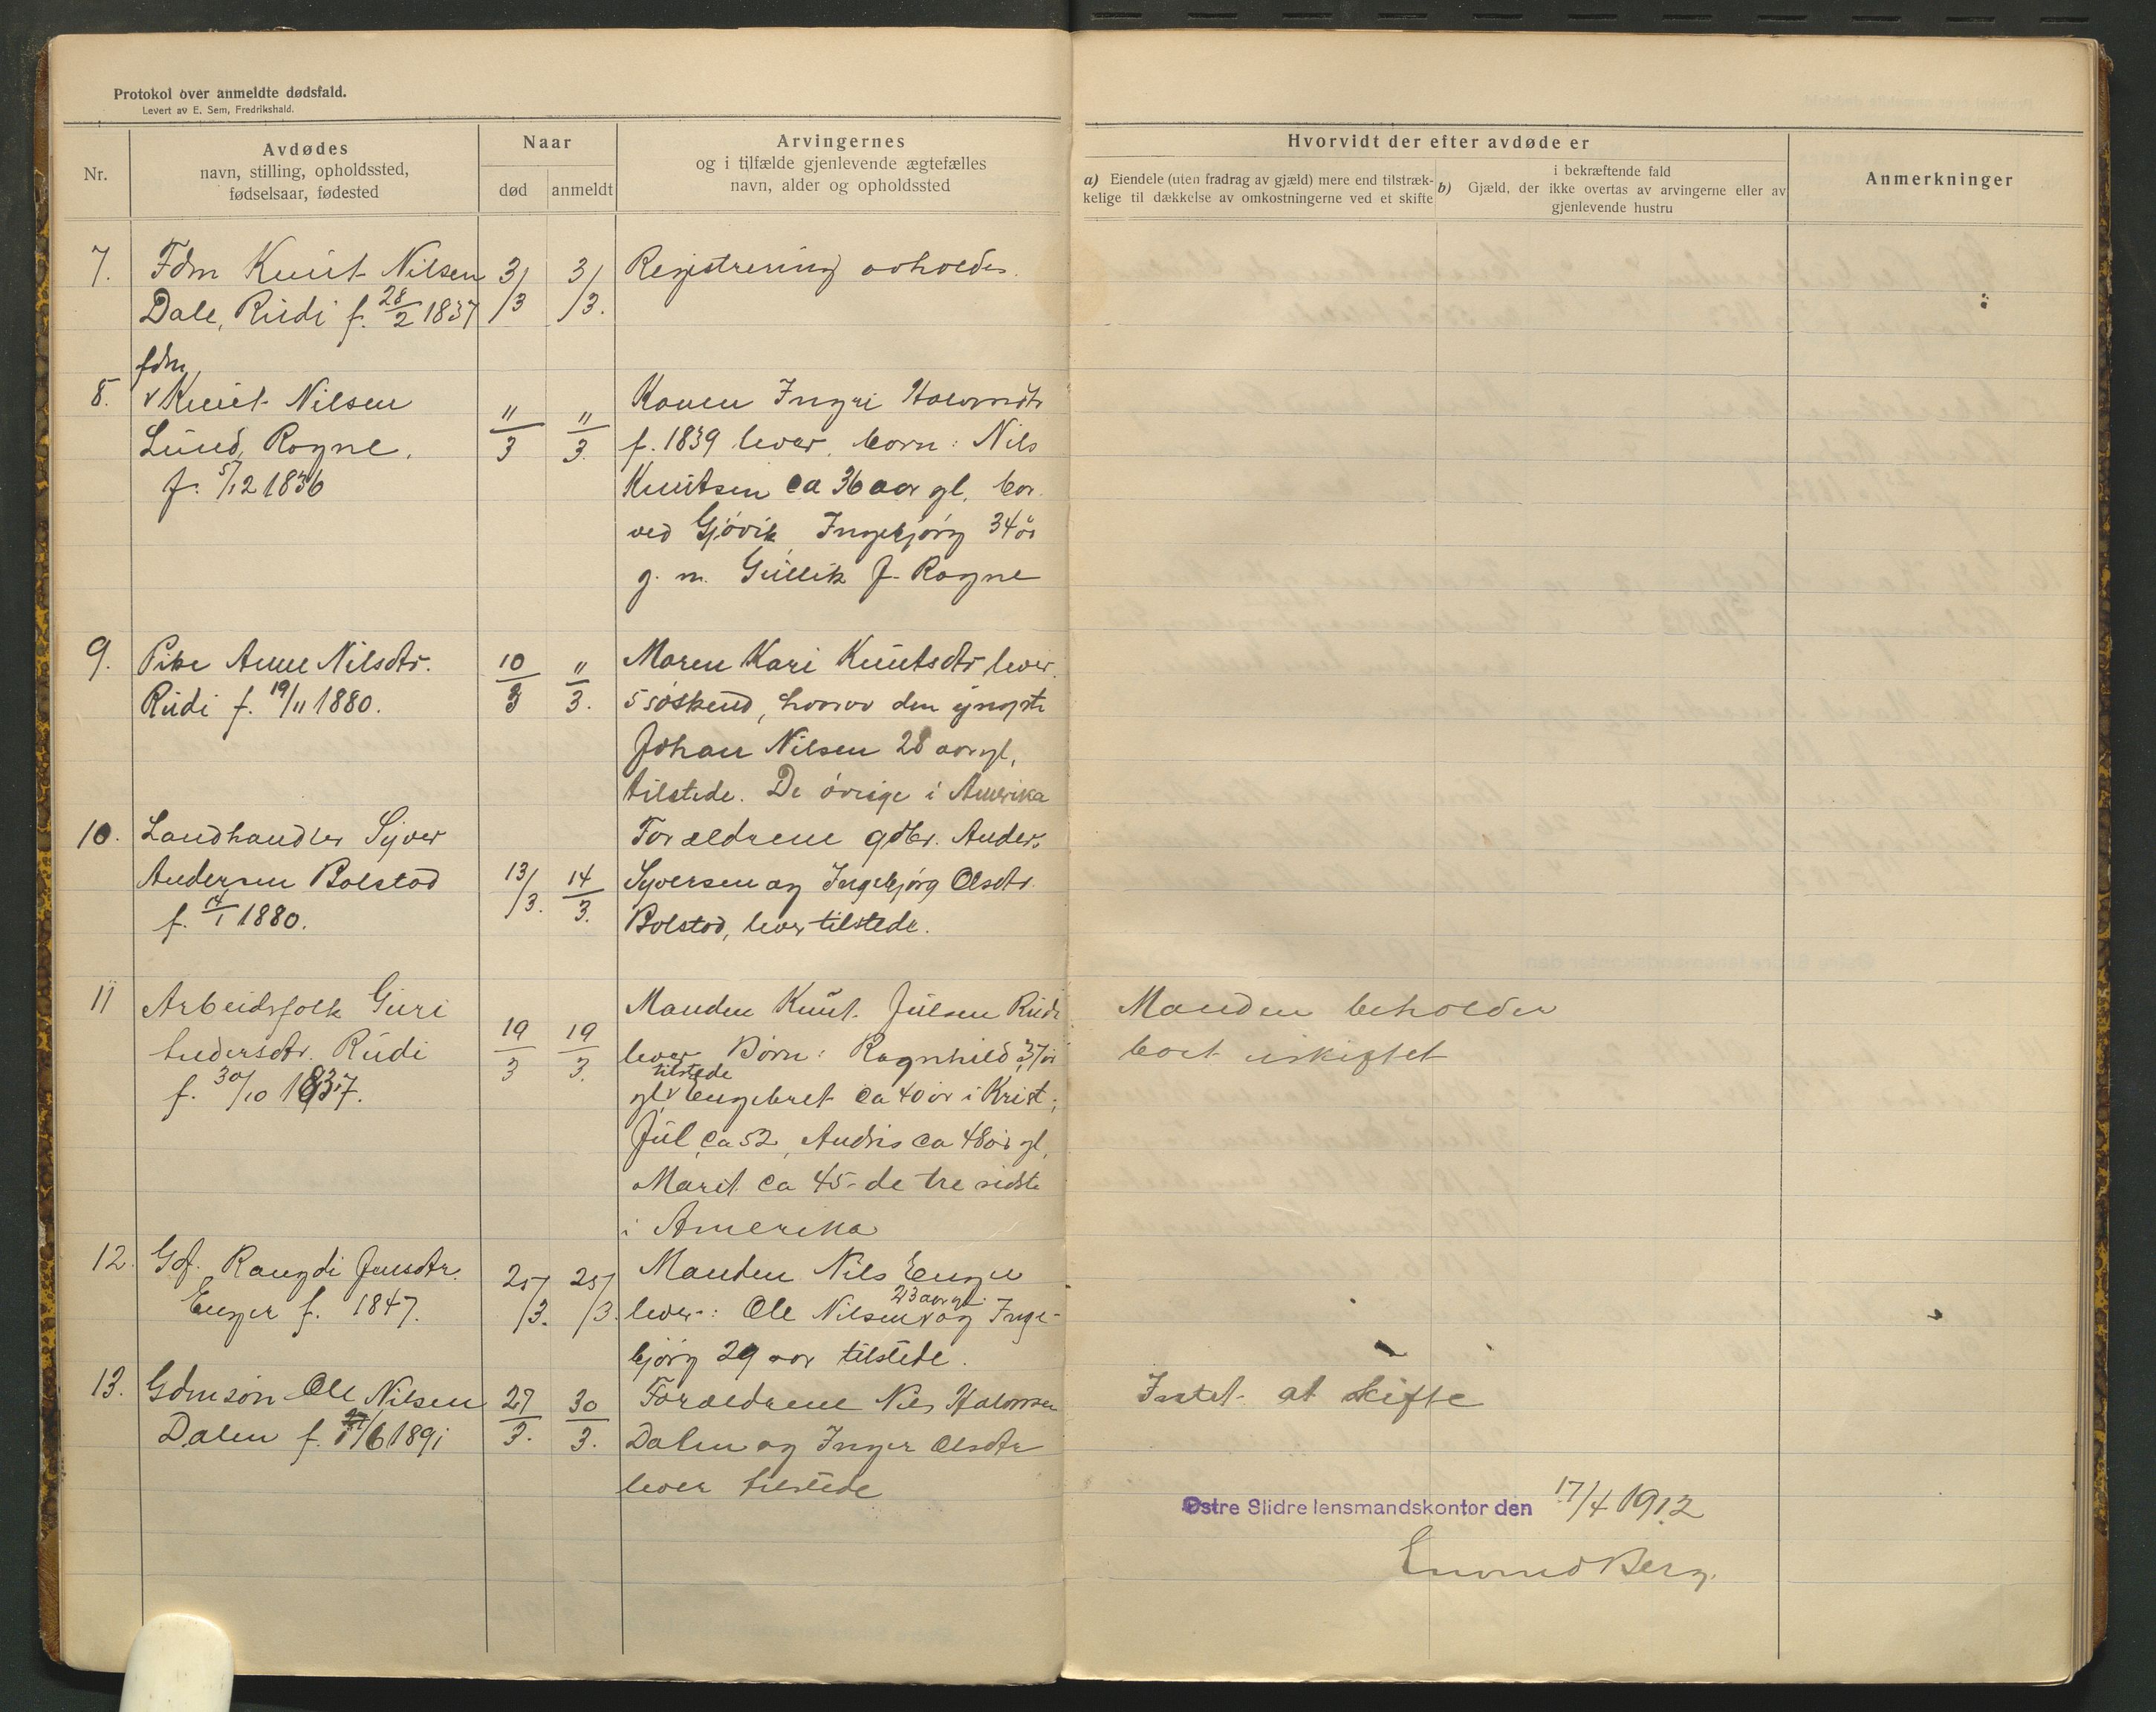 Protokol over anmeldte dødsfald.
Levert av E. Sem, Fredrikshald.
Nr.
Avdødes
navn, stilling, opholdssted,
fødselsaar, fødested
Naar
død
anmeldt
Arvingernes
og i tilfælde gjenlevende ægtefælles
navn, alder og opholdssted
Hvorvidt der efter avdøde er
a) Eiendele (uten fradrag av gjæld) mere end tilstræk-
kelige til dækkelse av omkostningerne ved et skifte
i bekræftende fald
b) Gjæld, der ikke overtas av arvingerne eller av
gjenlevende hustru
Anmerkninger
7.
Fdm Knut Nilsen
Dale, Rudi f. 28/2 1837
3/3
3/3.
Registrering avholdes.
8.
fdm
v Knut Nilsen
Lund, Rogne.
f. 5/12 1836
"/3
"/3.
Konen Ingri
f. 1839 lever, born: Nils
Knutsen ca 36 aar gl, bor
ved Gjövik, Ingebjörg 34 år
g. m. Gullik J. Rogne
9.
Pike Anne Nilsdtr.
Rudi f. 19/11 1880.
10/3
"/3.
Moren Kari Knutsdtr lever.
5 söskend, hvorav den yngste
Johan Nilsen 28 aar gl,
tilstede. De övrige i Amerika
10.
Landhandler Syver
Andersen Bolstad
f. 14/1 1880.
13/3.
14/3.
Forældrene gdbr. Anders
Syversen og Ingebjörg Olsdtr.
Bolstad, lever tilstede.
11
Arbeidsfolk Guri
Andersdtr. Rudi
f. 30/10 1837.
19/3
19/3.
Manden Knut Julsen Rudi
lever Börn: Ragnhild, 37 år
tilstede
gl v Engebret ca 40 år i Krist.;
Jul ca 52, Andris ca 48 år gl,
Marit ca 45 - de tre sidste
i Amerika
Manden beholder
boet uskiftet
12.
Gdf. Rangdi Jensdtr.
Enger f. 1847.
25/3.
25/3.
Manden Nils Enger
23 aar gl.
lever: Ole Nilsen v og Inge-
björg 29 aar tilstede.
13.
Gdmsön Ole Nilsen
Dalen f. /6 1891
27/3.
30/3.
Forældrene Nils
Dalen og Inger Olsdtr
lever tilstede
Intet at skifte
Østre Slidre lensmandskontor den 17/4 1912
Berg.